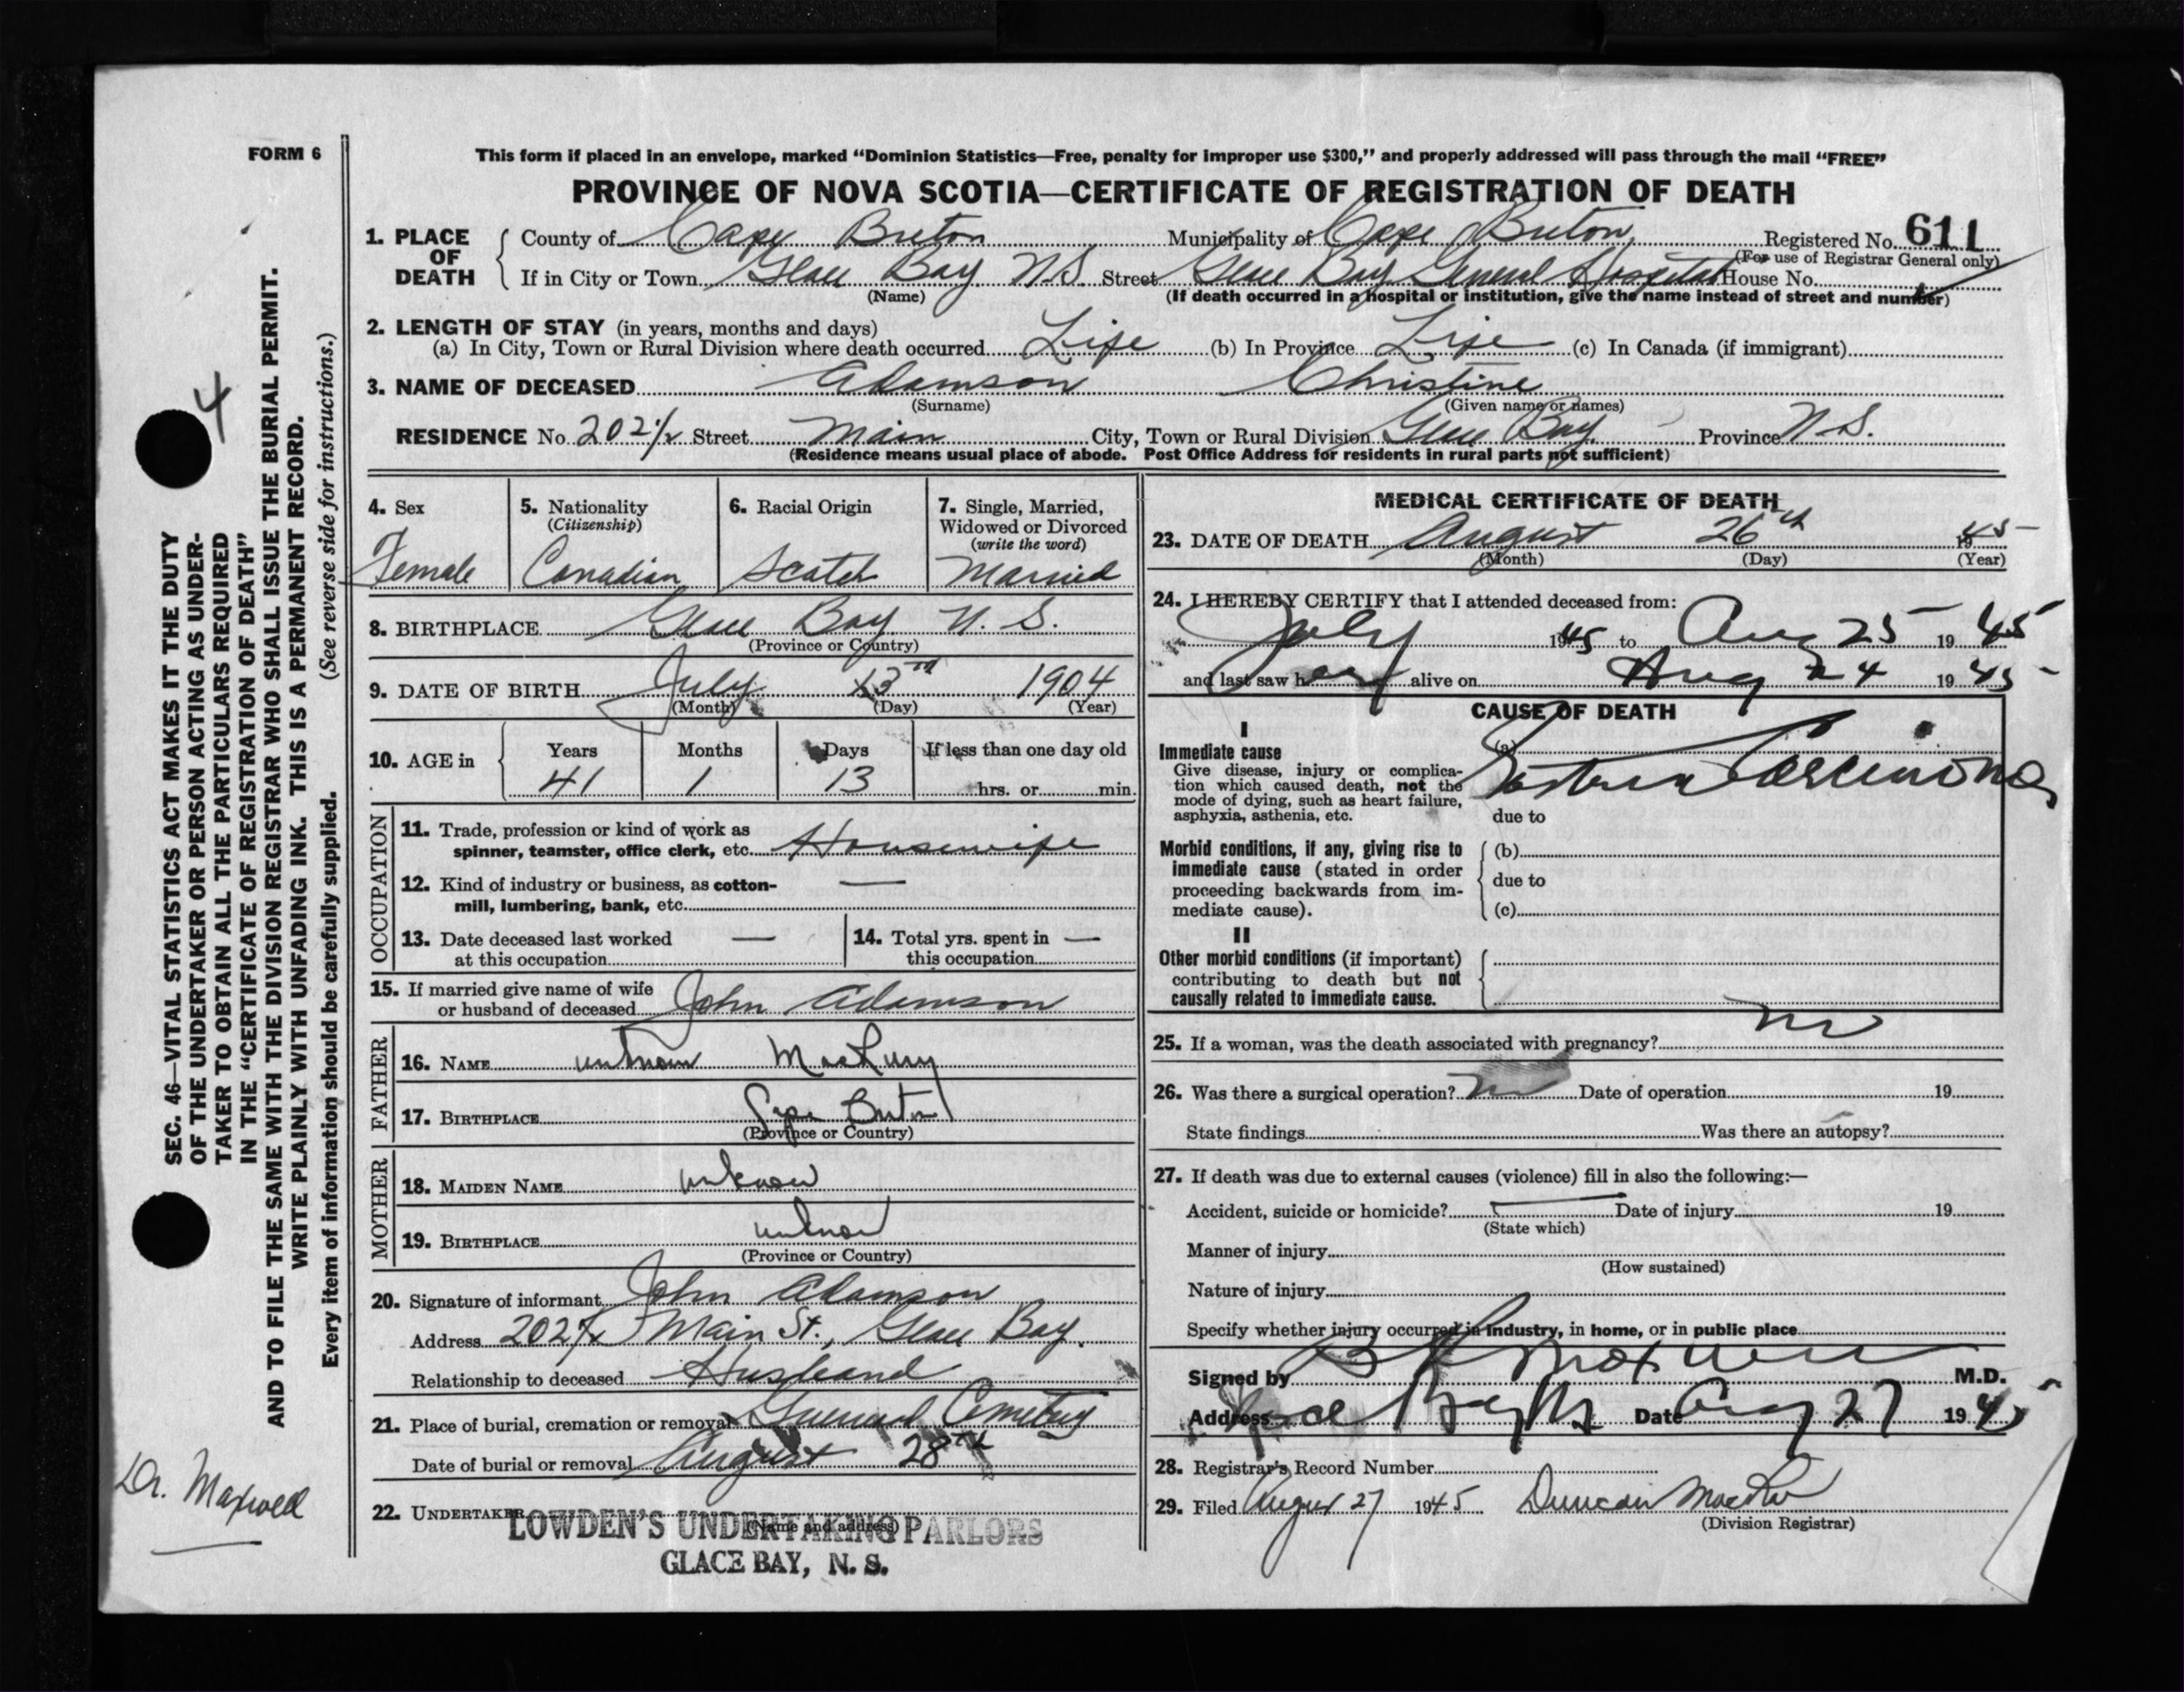 FORM 6
This form if placed in an envelope, marked “Dominion Statistics—Free, penalty for improper use $300,” and properly addressed will pass through the mail “FREE”
PROVINCE OF NOVA SCOTIA—CERTIFICATE OF REGISTRATION OF DEATH
1. PLACE OF DEATH
County of Cape Breton Municipality of Cape Breton Registered No. 611
(For use of Registrar General only)
If in City or Town Glace Bay N.S. Street Glace Bay General Hospital House No.
(Name) (If death occurred in a hospital or institution, give the name instead of street and number)
2. LENGTH OF STAY (in years, months and days)
(a) In City, Town or Rural Division where death occurred Life (b) In Province Life (c) In Canada (if immigrant)
3. NAME OF DECEASED Adamson Christine
(Surname) (Given name or names)
RESIDENCE No. 202½ Street Main City, Town or Rural Division Glace Bay Province N.S.
(Residence means usual place of abode. Post Office Address for residents in rural parts not sufficient)
4. Sex
Female
5. Nationality
(Citizenship)
Canadian
6. Racial Origin
Scotch
7. Single, Married,
Widowed or Divorced
(write the word)
Married
8. BIRTHPLACE Glace Bay N.S.
(Province or Country)
9. DATE OF BIRTH July 13th 1904
(Month) (Day) (Year)
10. AGE in
Years Months Days If less than one day old
41 1 13 hrs. or min.
OCCUPATION
11. Trade, profession or kind of work as
spinner, teamster, office clerk, etc. Housewife
12. Kind of industry or business, as cotton- —
mill, lumbering, bank, etc.
13. Date deceased last worked —
at this occupation
14. Total yrs. spent in —
this occupation
15. If married give name of wife
or husband of deceased John Adamson
FATHER
16. NAME unknown
17. BIRTHPLACE Cape Breton
(Province or Country)
MOTHER
18. MAIDEN NAME unknown
19. BIRTHPLACE unknown
(Province or Country)
20. Signature of informant John Adamson
Address 202½ Main St., Glace Bay.
Relationship to deceased Husband
21. Place of burial, cremation or removal Greenwood Cemetery
Date of burial or removal August 28th
22. UNDERTAKER
(Name and address)
LOWDEN'S UNDERTAKING PARLORS
GLACE BAY, N. S.
MEDICAL CERTIFICATE OF DEATH
23. DATE OF DEATH August 26th 1945
(Month) (Day) (Year)
24. I HEREBY CERTIFY that I attended deceased from:
July 1945 to Aug 25 1945
and last saw her alive on Aug 24 1945
CAUSE OF DEATH
I
Immediate cause
Give disease, injury or complica-
tion which caused death, not the
mode of dying, such as heart failure,
asphyxia, asthenia, etc.
(a) Carcinoma
due to
Morbid conditions, if any, giving rise to
immediate cause (stated in order
proceeding backwards from im-
mediate cause).
(b)
due to
(c)
II
Other morbid conditions (if important)
contributing to death but not
causally related to immediate cause.
25. If a woman, was the death associated with pregnancy? no
26. Was there a surgical operation? no Date of operation 19
State findings Was there an autopsy?
27. If death was due to external causes (violence) fill in also the following:—
Accident, suicide or homicide? Date of injury 19
(State which)
Manner of injury
(How sustained)
Nature of injury
Specify whether injury occurred in industry, in home, or in public place
Signed by Maxwell M.D.
Address Glace Bay NS Date Aug 27 1945
28. Registrar's Record Number
29. Filed August 27 1945 Duncan
(Division Registrar)
SEC. 46—VITAL STATISTICS ACT MAKES IT THE DUTY
OF THE UNDERTAKER OR PERSON ACTING AS UNDER-
TAKER TO OBTAIN ALL THE PARTICULARS REQUIRED
IN THE “CERTIFICATE OF REGISTRATION OF DEATH”
AND TO FILE THE SAME WITH THE DIVISION REGISTRAR WHO SHALL ISSUE THE BURIAL PERMIT.
WRITE PLAINLY WITH UNFADING INK. THIS IS A PERMANENT RECORD.
Every item of information should be carefully supplied. (See reverse side for instructions.)
4
Dr. Maxwell